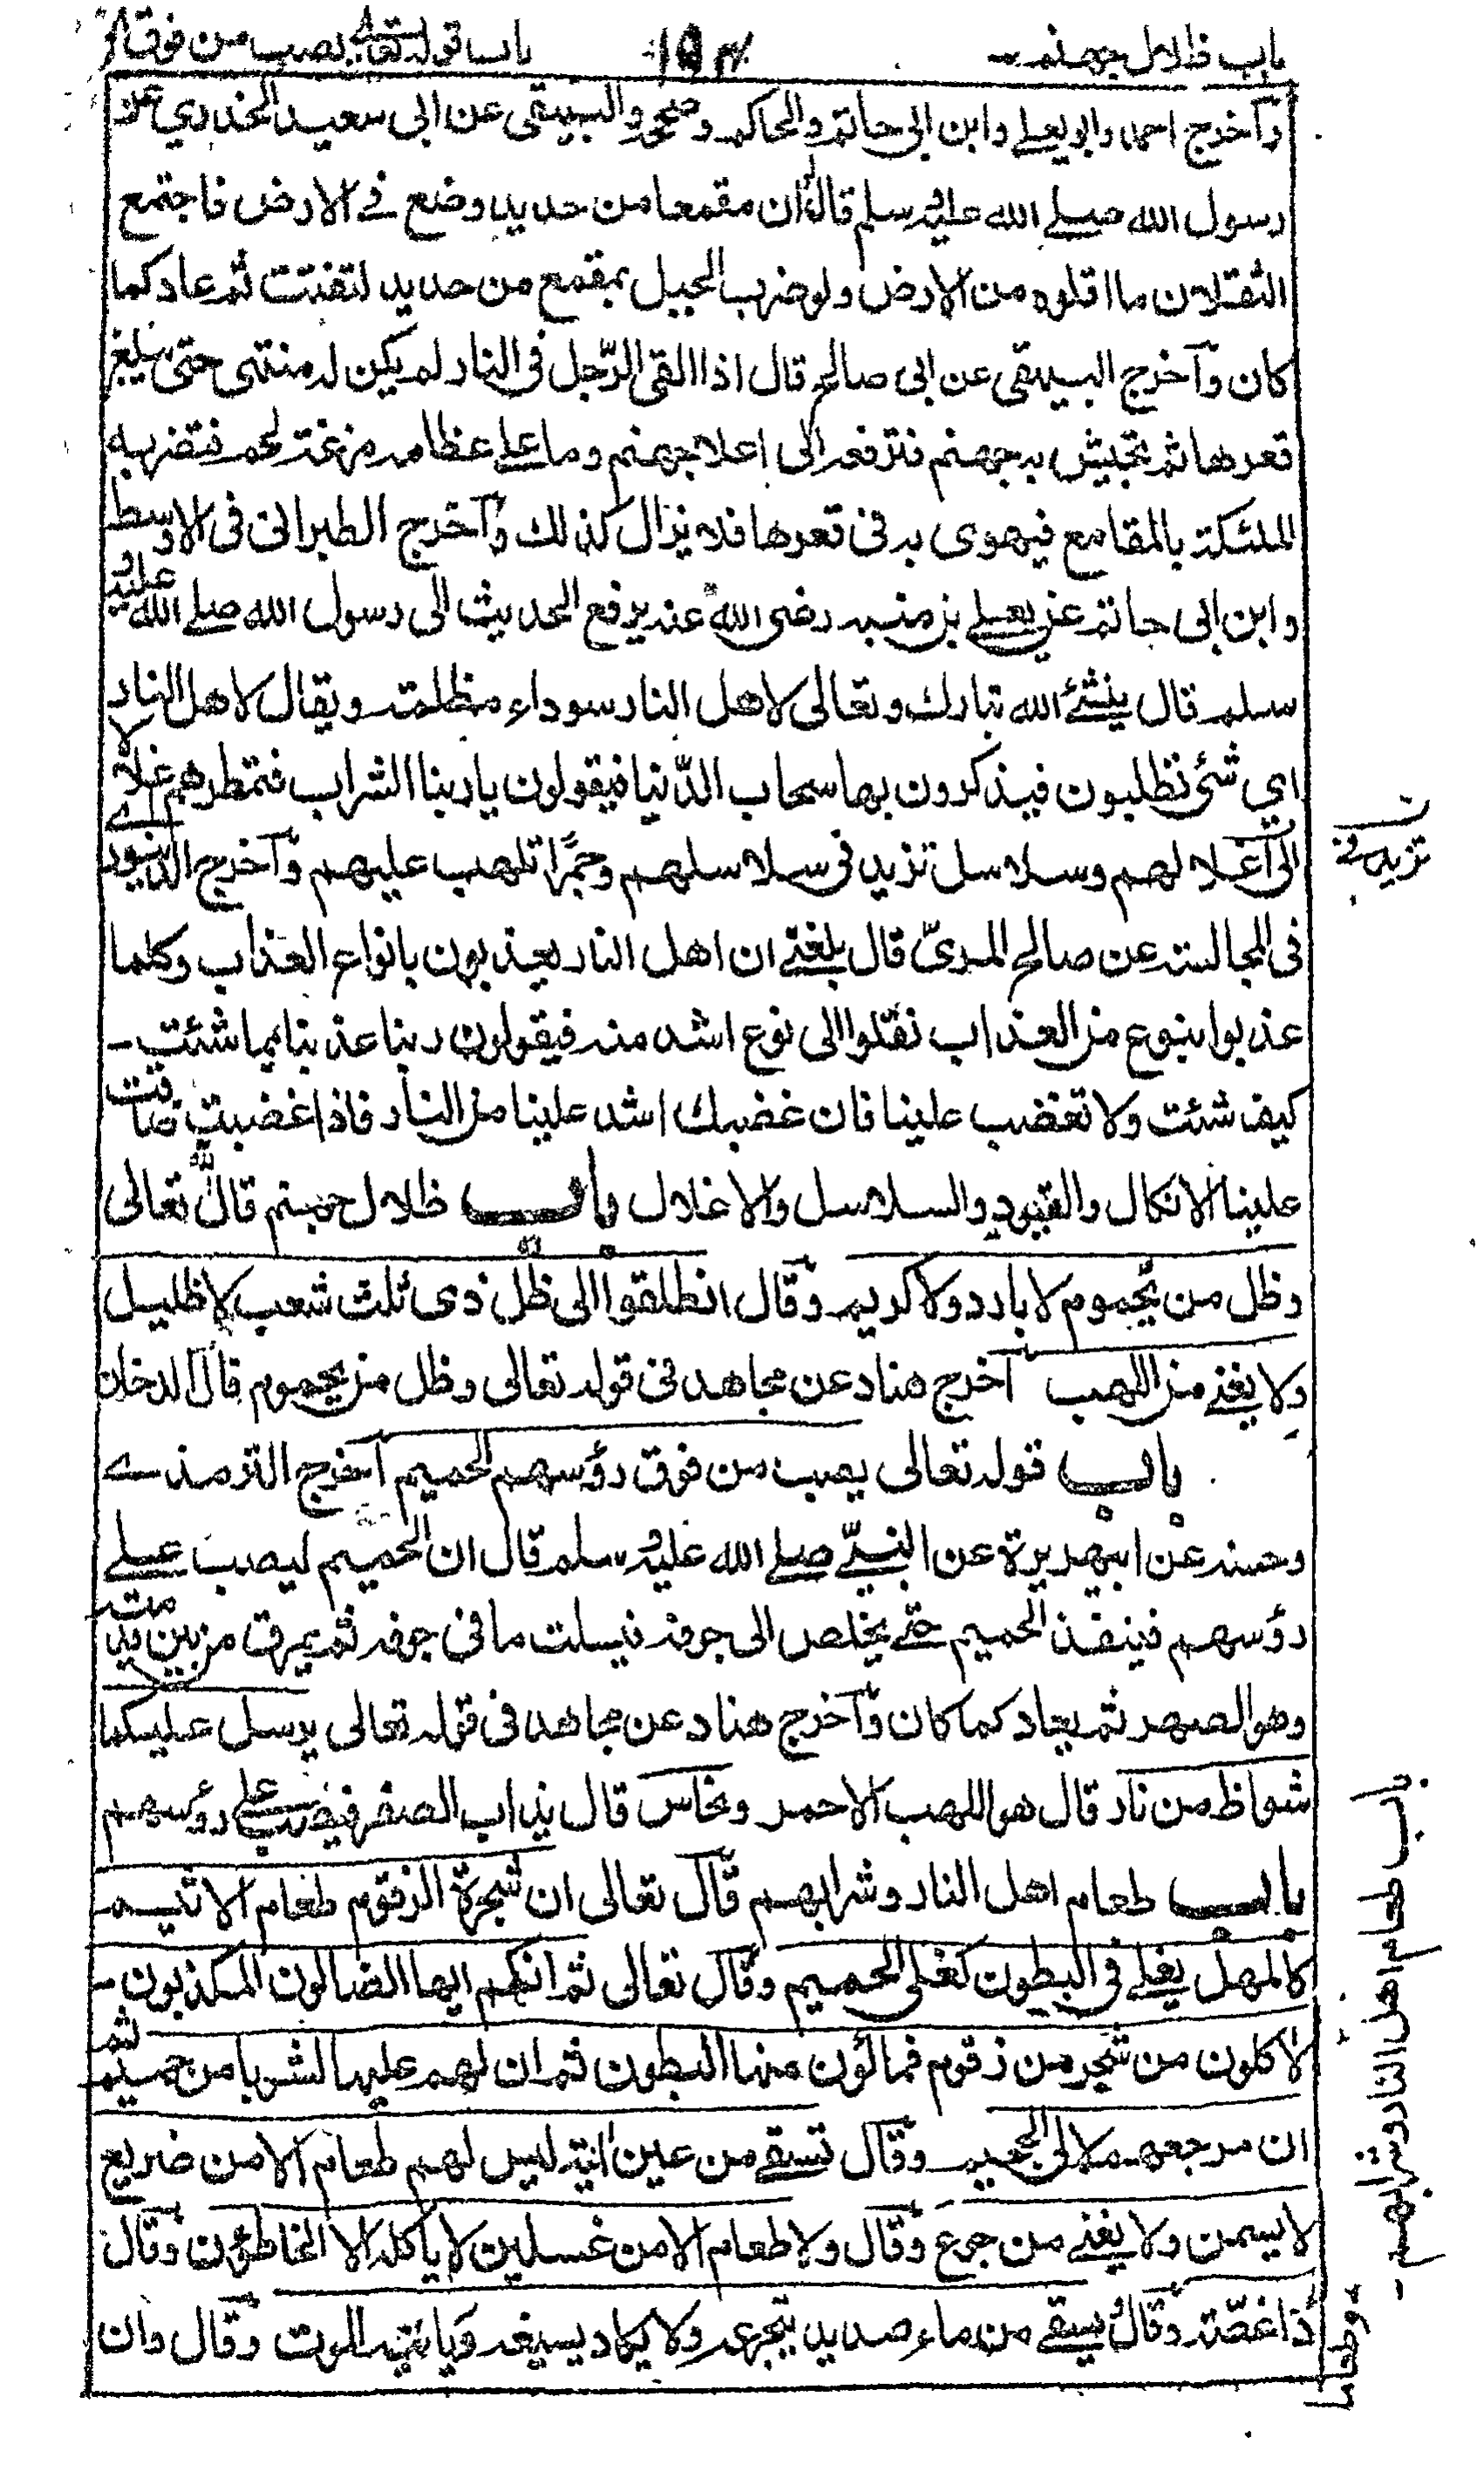 باب ظلال جهنم
١٥٣
باب قوله تعالى يصب من فوق
وآخرج احمد وابو يعلى وابن ابى حاتم والحاكم وصححه والبيهقى عن ابى سعيد الخدري عن
رسول الله صلے الله عليه وسلم قال لو ان مقمعا من حديد وضع فے الارض فاجتمع
الثقلان ما اقلوه من الارض ولو ضرب الجبل بمقمع من حديد لتفتت ثم عاد كما
كان وآخرج البيهقى عن ابى صالح قال اذا القى الرّجل فى النار لم يكن له منتهى حتى يبلغ
قعرها ثم تجيش به جهنم فترفعه الى اعلا جهنم وما علے عظامه مزغة لحم فتضربه
الملئكة بالمقامع فيهوى به فى قعرها فلا يزال كذلك وآخرج الطبرانى فى الاوسط
وابن ابى حاتم عن يعلے بن منبه رضى الله عنه يرفع الحديث الى رسول الله صلے الله عليه و
سلم قال ينشئ الله تبارك وتعالى لاهل النار سوداء مظلمة ويقال لاهل النار
اي شئ تطلبون فيذكرون بها سحاب الدّنيا فيقولون يا ربنا الشراب فتمطرهم اغلالا
الى آغلالهم وسلاسل تزيد فى سلاسلهم وجمرًا تلهب عليهم وآخرج الدينورے
فى المجالسة عن صالح المرىّ قال بلغنے ان اهل النار يعذبون بانواع العذاب وكلما
عذبوا بنوع من العذاب نقلوا الى نوع اشد منه فيقولون ربنا عذبنا بما شئت
كيف شئت ولا تغضب علينا فان غضبك اشد علينا من النار فاذا غضبت ضاقت
علينا الانكال والقيود والسلاسل والاغلال باب ظلال جهنم قال الله تعالى
وظل من يحموم لا بارد ولا كريم وقال انطلقوا الى ظل ذى ثلث شعب لا ظليل
ولا يغنے من اللهب آخرج هناد عن مجاهد فى قوله تعالى وظل من يحموم قال الدخان
باب قوله تعالى يصب من فوق رؤسهم الحميم آخرج الترمذے
وحسنه عن ابيهريرة عن النبيّ صلے الله عليه وسلم قال ان الحميم ليصب علے
رؤسهم فينفذ الحميم حتے يخلص الى جوفه فيسلت ما فى جوفه ثم يمرق من بين قدميه
وهو الصهر ثم يعاد كما كان وآخرج هناد عن مجاهد فى قوله تعالى يرسل عليكما
شواظ من نار قال هو اللهب الاحمر ونحاس قال يذاب الصفر فيصب علے رؤسهم
باب طعام اهل النار وشرابهم قال تعالى ان شجرة الزقوم طعام الاثيم
كالمهل يغلے فى البطون كغلى الحميم وقال تعالى ثم انكم ايها الضالون المكذبون
لاكلون من شجر من زقوم فمالؤن منها البطون ثم ان لهم عليها لشوبا من حميم ثم
ان مرجعهم لا لى الجحيم وقال تسقے من عين انية ليس لهم طعام الا من ضريع
لا يسمن ولا يغنے من جوع وقال ولا طعام الا من غسلين لا ياكله الا الخاطؤن وقال
ذا غصّة وقال يسقے من ماء صديد يتجرعه ولا يكاد يسيغه وياتيه الموت وقال وان
تزيد فے
باب طعام اهل النار وشرابهم
وطعاما